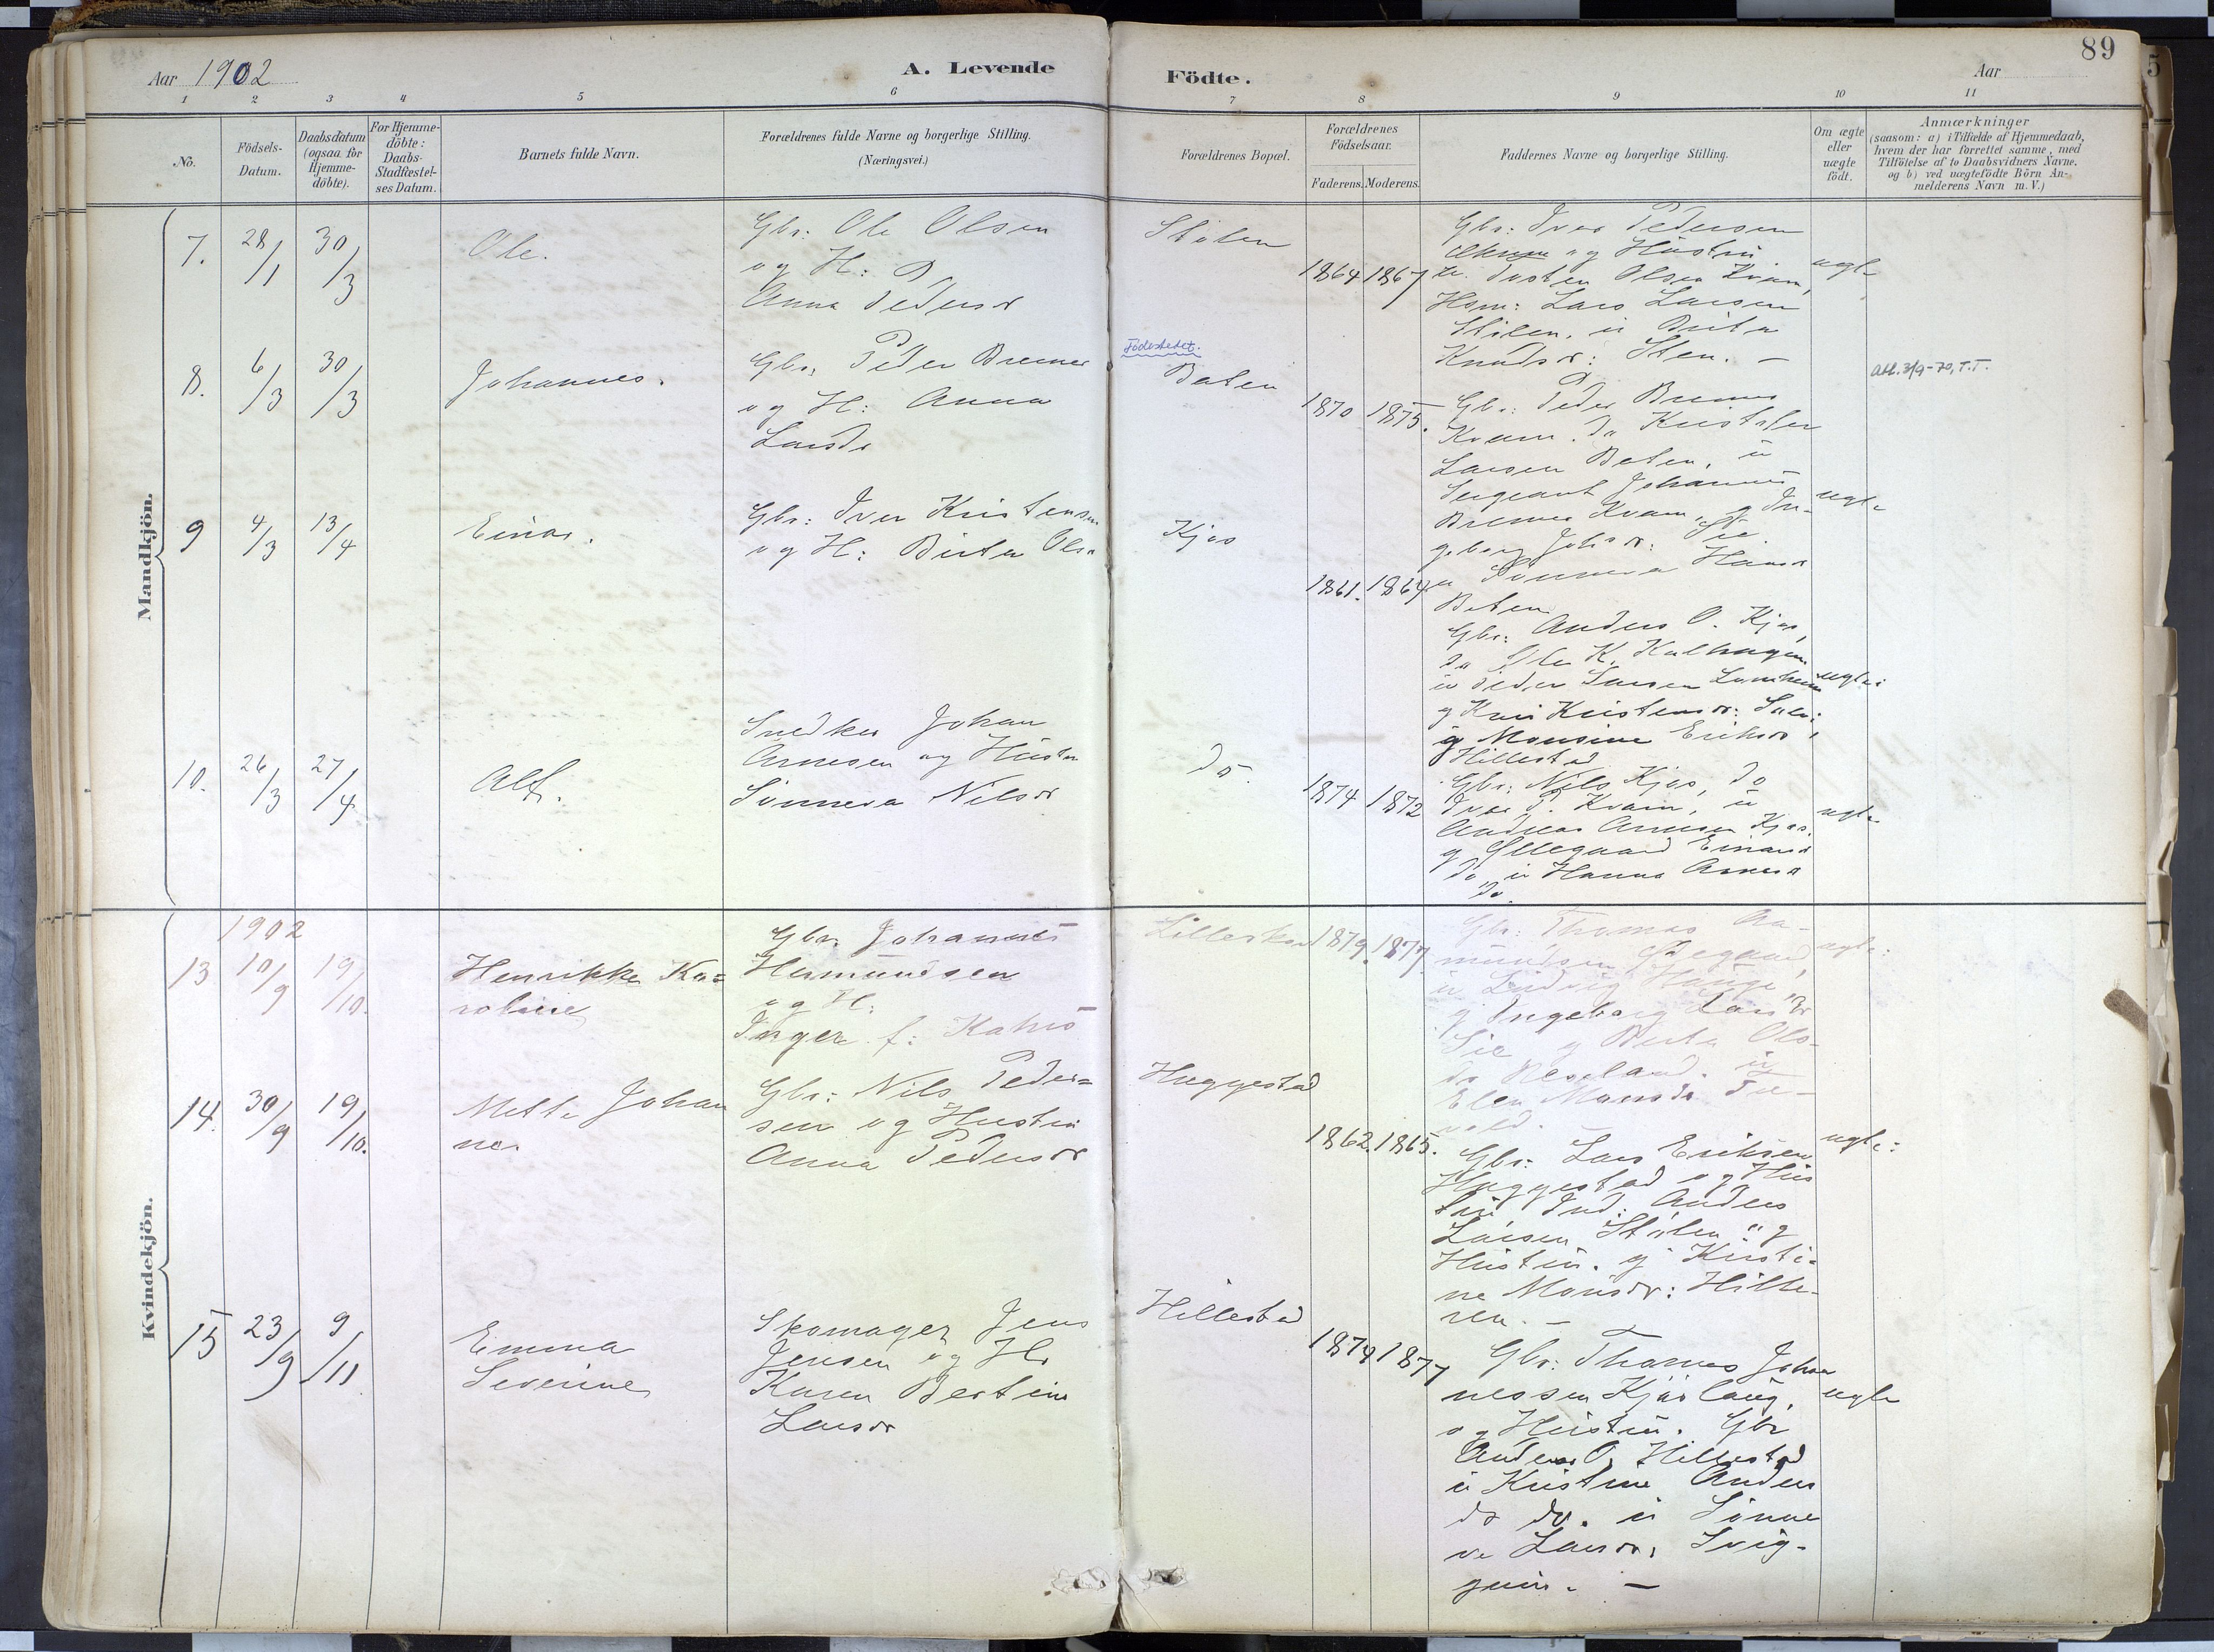 89
Aar 1902
A. Levende
Födte.
Aar
1 2 3 4 5 6 7 8 9 10 11
No.
Födsels-
Datum.
Daabsdatum
(ogsaa for
Hjemme-
döbte).
For Hjemme-
döbte:
Daabs-
Stadfæstel-
ses Datum.
Barnets fulde Navn.
Forældrenes fulde Navne og borgerlige Stilling.
(Næringsvei.)
Forældrenes Bopæl.
Forældrenes
Födselsaar.
Faderens. Moderens.
Faddernes Navne og borgerlige Stilling.
Om ægte
eller
uægte
födt.
Anmærkninger
(saasom: a) i Tilfælde af Hjemmedaab,
hvem der har forrettet samme, med
Tilföielse af to Daabsvidners Navne.
og b) ved uægtefödte Börn An-
melderens Navn m. V.)
Mandkjön.
7. 28/1 30/3
Ole.
Gbr: Ole Olsen
og H:
Anna Pedersdr
Stölen
1864 1867
Gbr: Iver Pedersen
og Hustru
Olsen Kvam,
Hsm: Lars Larsen
Stölen. Brita
Knudsdr: Sten. –
ægte
8. 6/3 30/3
Johannes.
Gbr. Peder Bremer
og H: Anna
Larsdr
Födestedet.
Baten
1870 1875.
Gbr: Peder Bremer
Kvam. do Kristofer
Larsen Baten,
Sergeant Johannes
Bremer Kvam, g In-
geborg Johsdr:
Sönneva Hansdr
Baten
ægte
9 4/3 13/4
Einar.
Gbr: Iver Kristensen
og H: Brita Olsdr
Kjos
1861. 1864
Gbr: Anders O. Kjos,
do Ole K. Kalhagen
Peder Larsen
g Kari Kristensdr:
Monsine Eriksdr,
Hillestad
ægte:
10. 26/3 27/4
Alf.
Snedker Johan
Arnesen og Hustru
Sönneva Nilsdr
do.
1874 1872
Gbr: Nils Kjos, do
Iver P. Kvam,
Andreas Arnesen Kjos.
g Ellegaard Einarsdr
do Hanna Arnesdr
do.
ægte
Kvindekjön.
1902
13 10/9 19/10.
Henrikke Ka=
roline
Gbr. Johannes
Hermundsen
og H:
Inger f: Kahrs
Lilleskar
1879. 1877.
Gbr: Thomas Aa-
mundsen
Ludvig Hauge
g Ingeborg Larsdr
g Berta Ols-
dr Neseland.
Elen Monsdr
ægte:
14. 30/9 19/10.
Mette Johan
ne.
Gbr: Nils Peder=
sen og Hustru
Anna Pedersdr
Huggestad
1862. 1865.
Gbr: Lars Eriksen
Huggestad og Hus
tru Ind: Anders
Larsen Stölen g
Hustru. g Kirsti-
ne Monsdr: Hille-
ren. –
ægte:
15 23/9 9/11
Emma
Severine
Skomager Jens
Jensen og H:
Karen Bertine
Larsdr
Hillestad
1874 1877
Gbr: Thomas Johan
nessen Kjörlaug,
og Hustru. Gbr
Anders O. Hillestad
Kristine Anders
dr do. Sönne
ve Larsdr,
ægte
Att. 3/9-70, T.T.